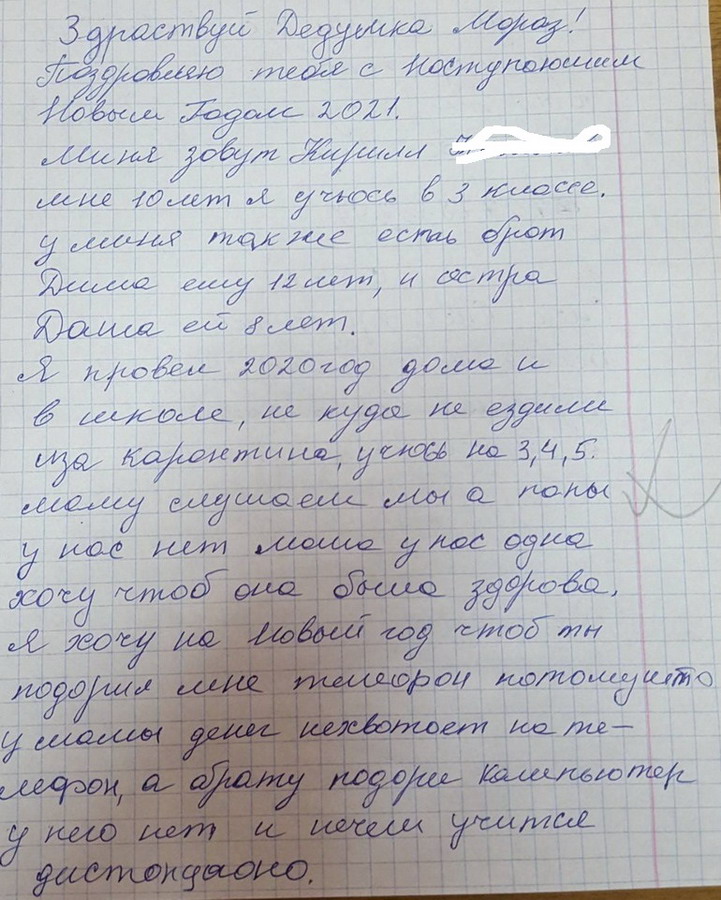 Здраствуй Дедушка Мороз!
Поздровляю тебя с Ноступоющим
Новым Годом 2021.
Миня зовут Кирилл
мне 10 лет я учюсь в 3 классе.
у миня также есть брот
Дима ему 12 лет, и состра
Даша ей 8 лет.
Я провел 2020 год дома и
в школе, не куда не ездили
иза каронтина, учюсь на 3,4,5.
маму слушаем мы а попы
у нас нет мама у нас одна
хочу чтоб она была здорова.
Я хочу на Новый год чтоб ты
подорил мне телефон потомушто
у мамы денег нехвотоет на те-
лефон, а брату подори компьютер
у него нет и нечем учится
дистонцаоно.